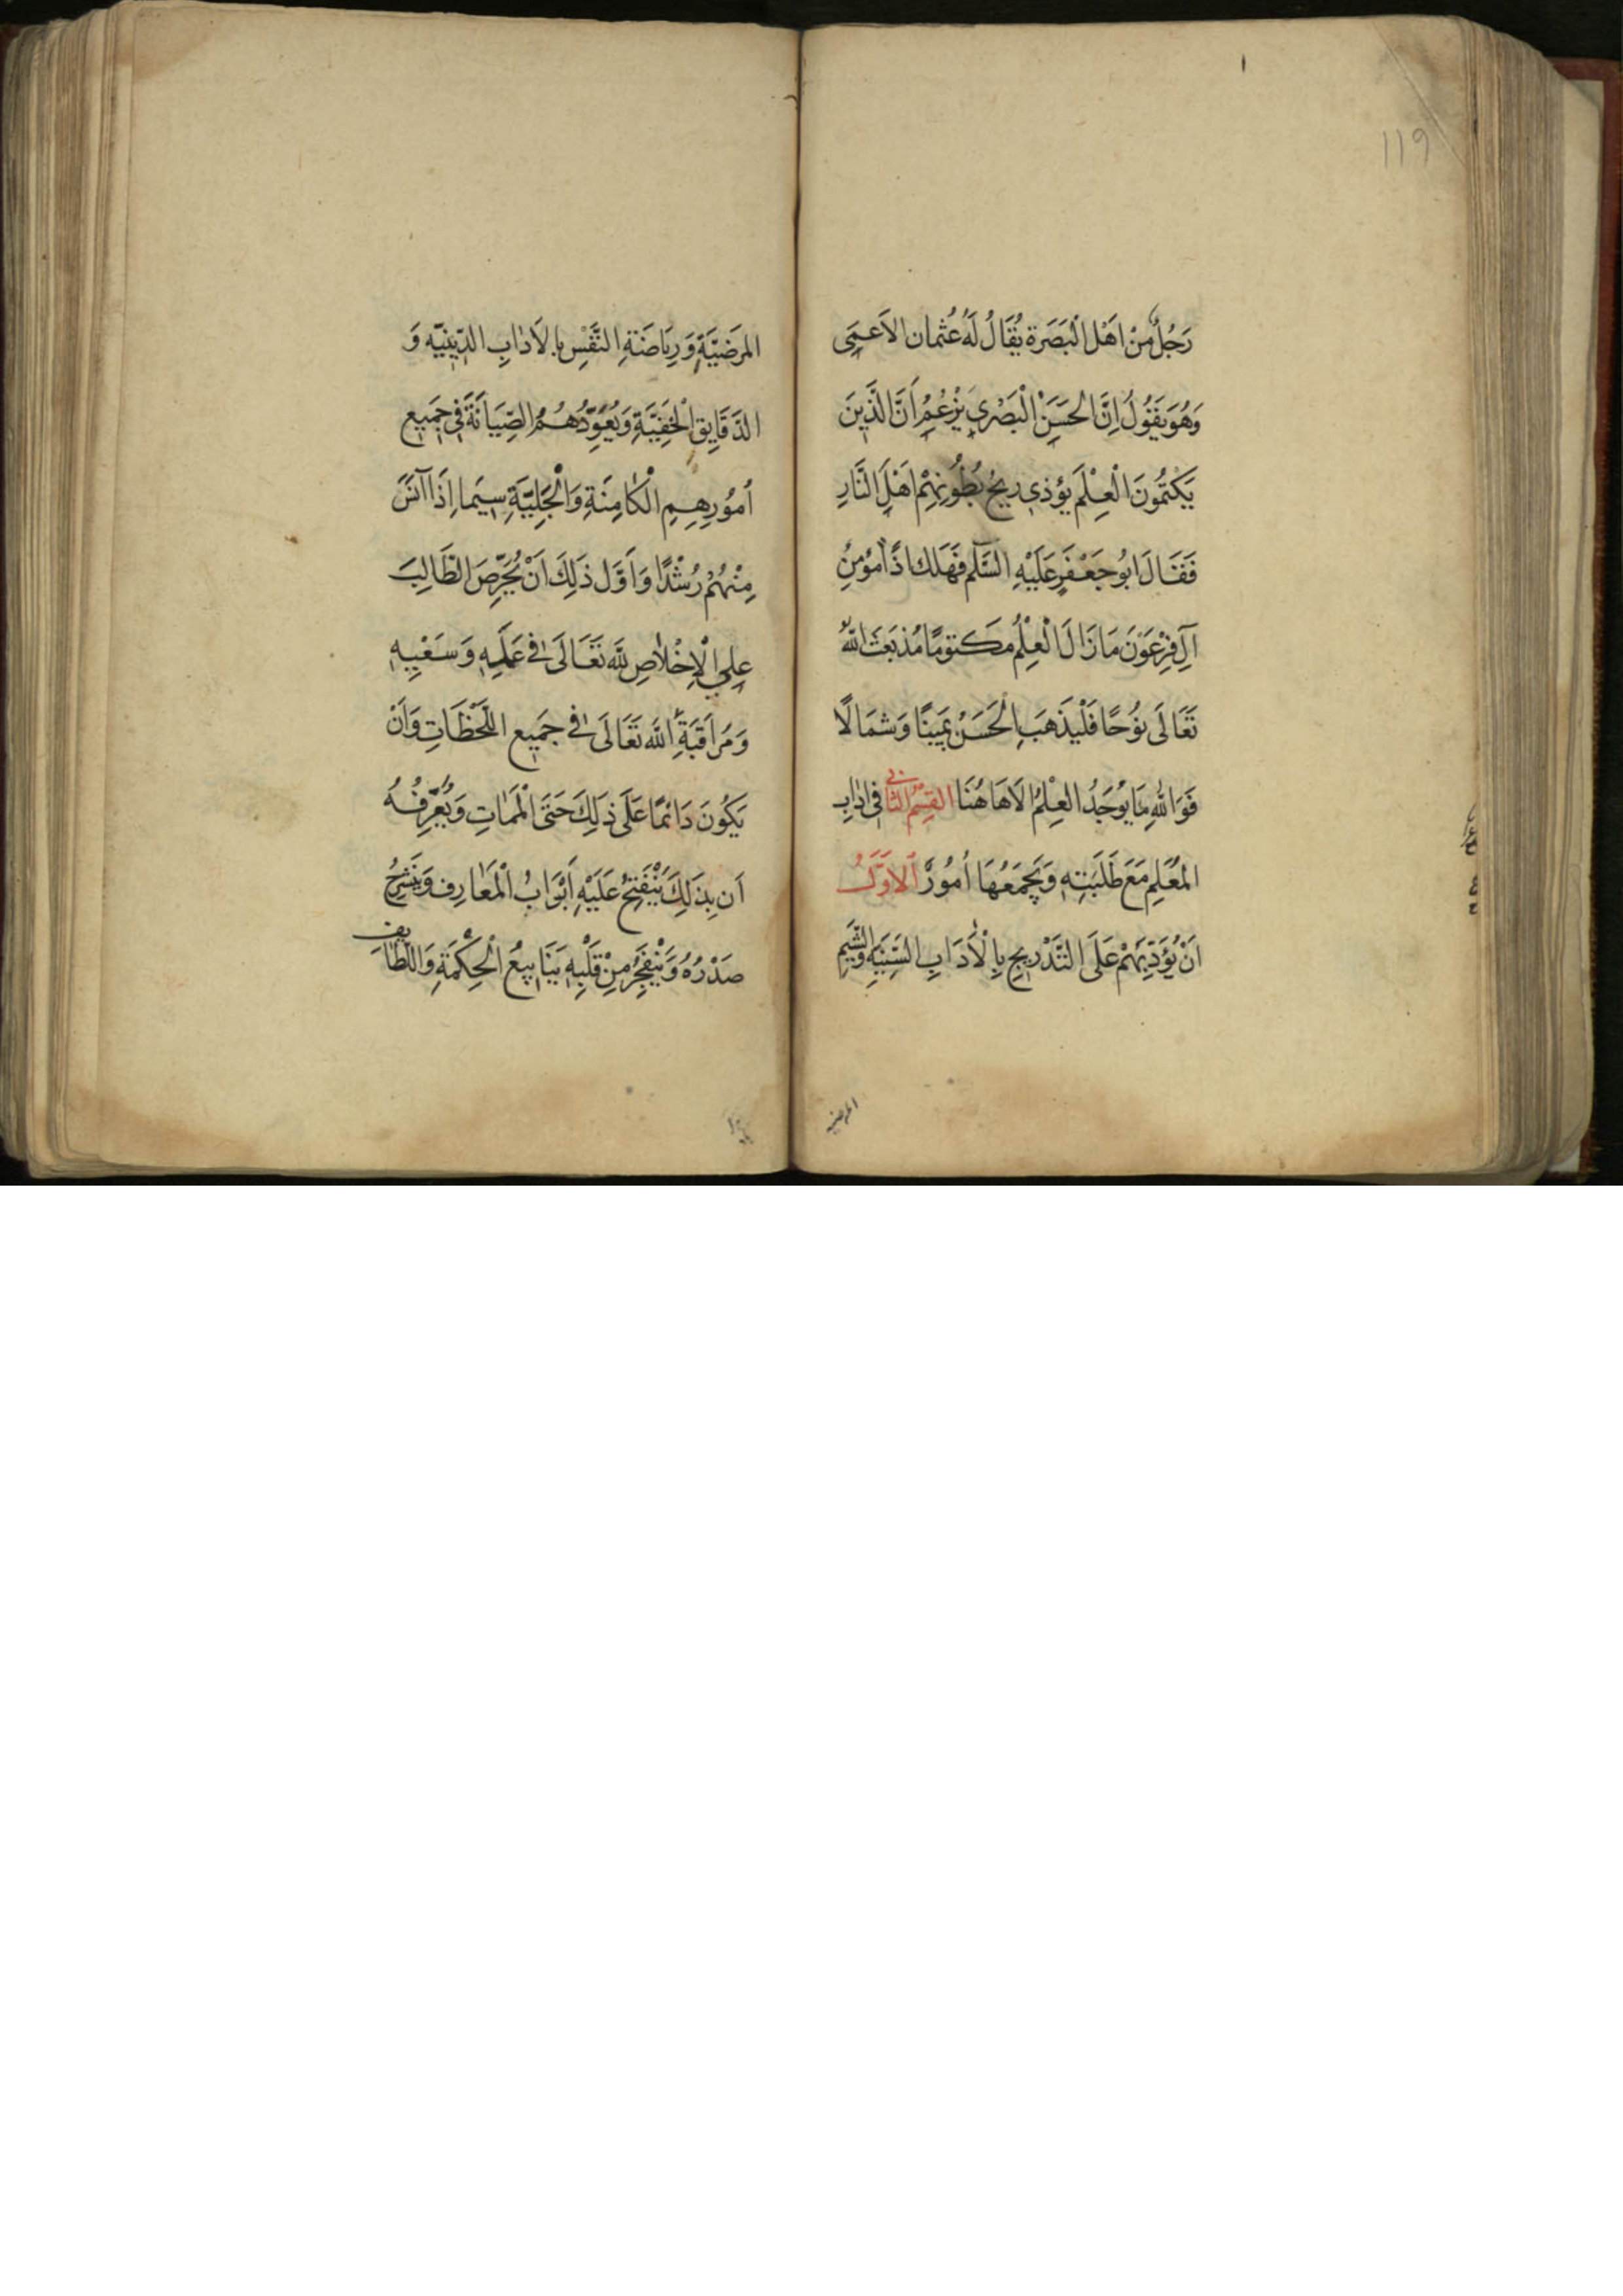 119
رَجُلٌ مِنْ اَهْلِ الْبَصَرَة يُقَالُ لَهُ عُثمان الاَعمَى
وَهُوَ يَقُولُ اِنَّ الحَسَنْ الْبَصْرِي يَزْعُمُ اَنَّ الَّذِينَ
يَكْتُمُونَ الْعِلْمَ يُؤذِي رِيحُ بُطُونِهِمْ اَهْلَ النَّارِ
فَقَالَ اَبُو جَعْفَرٍ عَلَيْهِ السَّلَم فَهَلَكَ اذًا مُؤمِنُ
آلِ فِرْعَوْنَ مَا زَالَ الْعِلْمُ مَكتومًا مُذ بَعَثَ اللّٰهُ
تَعَالَى نُوحًا فَلْيَذْهَبَ الْحَسَنْ يَمِينًا وَ شمَالًا
فَوَاللّٰهِ مَا يُوْجَدُ العِلْمُ اِلَا هَاهُنَا القِسْمُ الثانى فى ادابِ
المُعَلِم مَعَ طَلَبَتِهِ وَيَجْمَعُهَا اُمُورٌ اَلاَوَّلُ
اَنْ يُؤَدِّبَهُمْ عَلَى التَّدْرِيجِ بِالْاٰدَابِ السَّنِيَةِ وَالشِّيَمِ
المرضيه
المَرضِيَّةِ وَ رِيَاضَةِ النَّفْسِ بِالاَدٰابِ الدِّينِيَّه وَ
الدَقَايِقِ الْخَفِيَّةِ وَ يُعَوِّدُهُمُ الصِّيَانَةَ فِى جَمِيع
اُمُورِهِمِ الْكَامِنَةِ وَالْجَلِيَّةِ سِيَما اِذَا آنَسَ
مِنْهُمْ رُشْدًا وَ اَوَّل ذَلِكَ اَنْ يُحَرِّصَ الطَّالِبَ
عَلِي الْاِخْلاٰصِ لِلّٰه تَعَالَى فى عَمَلِهِ وَ سَعْيِهِ
وَ مُرَاقَبَةِ اللّٰه تَعَالَى فى جَمِيع اللَّحْظَاتِ وَ اَنْ
يَكُونَ دَائمًا عَلَى ذلَكَ حَتَى الْمَمَاتِ وَ يُعَرِّفُهُ
اَن بِذَلِكَ يَنْفَتِحُ عَلَيْهِ اَبْوَابُ الْمَعَارِف وَ يَنْشَرِحُ
صَدْرُهُ وَ يَنْفَجِرُ مِنْ قَلْبِهِ يَنَابِيعُ الْحِكْمَةِ وَ اللَّطَايِف